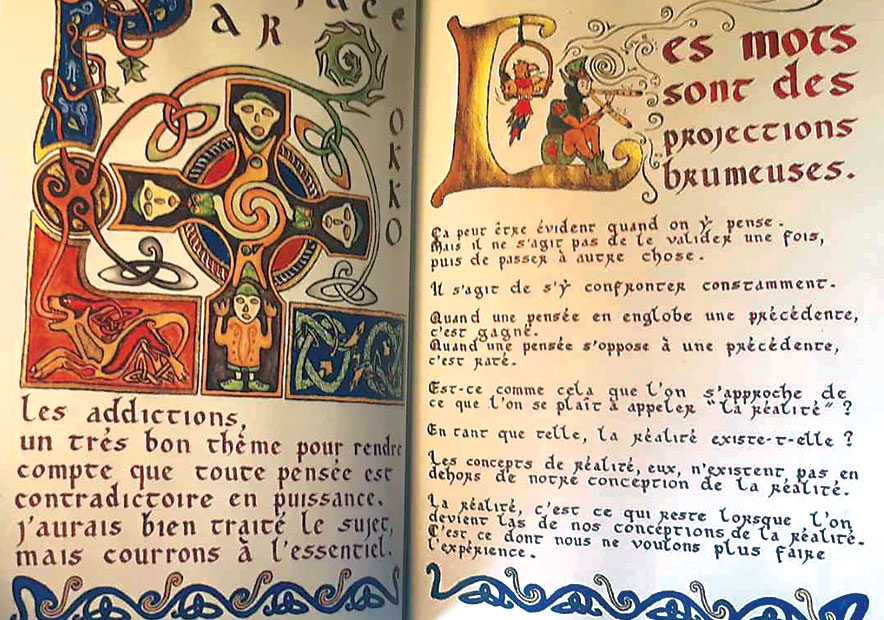 ace
AR
OKKO
Les addictions,
un trés bon thème pour rendre
compte que toute pensée est
contradictoire en puissance.
j'aurais bien traité le sujet,
mais courrons à l'essentiel.
Les mots
sont des
projections
brumeuses.
Ça peut être évident quand on y pense.
Mais il ne s'agit pas de le valider une fois,
puis de passer à autre chose.
Il s'agit de s'y confronter constamment.
Quand une pensée en englobe une précédente,
c'est gagné.
Quand une pensée s'oppose à une précédente,
c'est raté.
Est-ce comme cela que l'on s'approche de
ce que l'on se plaît à appeler "la réalité" ?
En tant que telle, la réalité existe-t-elle ?
Les concepts de réalité, eux, n'existent pas en
dehors de notre conception de la réalité.
La réalité, c'est ce qui reste lorsque l'on
devient las de nos conceptions de la réalité.
C'est ce dont nous ne voulons plus faire
l'expérience.